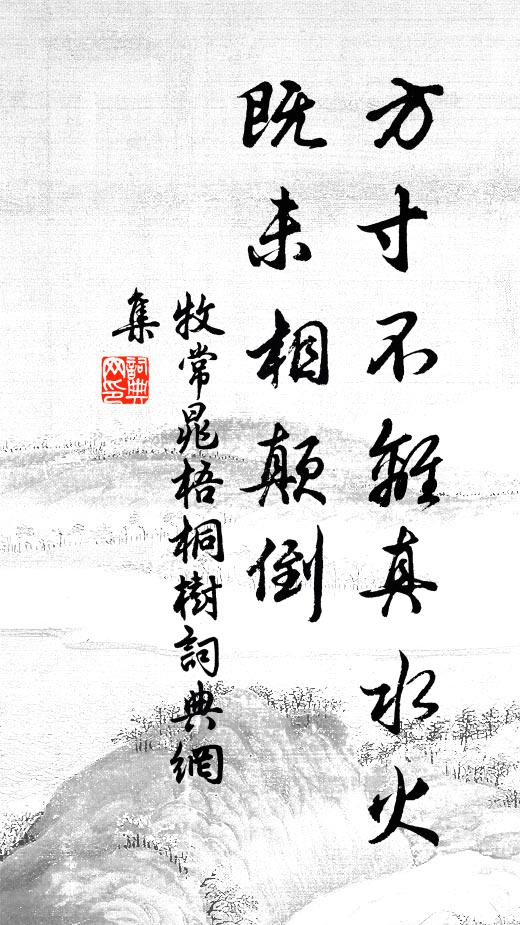 方寸不離真水火
既未相顛倒
牧常晁梧桐樹詞典網
集
詞典網印